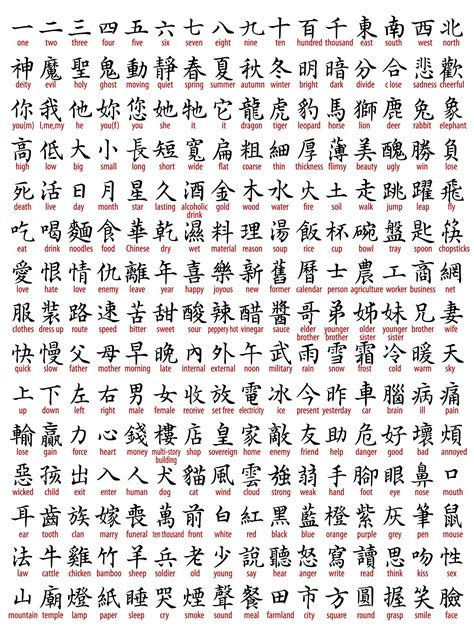 一 二 三 四 五 六 七 八 九 十 百 千 東 南 西 北
one two three four five six seven eight nine ten hundred thousand east south west north
神 魔 聖 鬼 動 靜 春 夏 秋 冬 明 暗 分 合 悲 歡
deity evil holy ghost moving quiet spring summer autumn winter bright dark divide close sadness cheerful
你 我 他 妳 您 她 牠 它 龍 虎 豹 馬 獅 鹿 兔 象
you(m) I,me,my he you(f) you she it it dragon tiger leopard horse lion deer rabbit elephant
高 低 大 小 長 短 寬 扁 粗 細 厚 薄 美 醜 勝 負
high low big small long short wide flat coarse thin thickness flimsy beauty ugly win lose
死 活 日 月 星 久 酒 金 木 水 火 土 走 跳 躍 飛
death live day month star lasting alcoholic drink gold wood water fire soil walk jump leap fly
吃 喝 麵 食 華 乾 濕 料 理 湯 飯 杯 碗 盤 匙 筷
eat drink noodles food Chinese dry wet material reason soup rice cup bowl tray spoon chopsticks
愛 恨 情 仇 離 年 喜 樂 新 舊 曆 士 農 工 商 網
love hate love enemy leave year happy joyous new former calendar person agriculture worker business net
服 裝 路 速 苦 甜 酸 辣 醋 醬 哥 弟 姊 妹 兄 妻
clothes dress up route speed bitter sweet sour peppery hot vinegar sauce elder brother younger brother elder sister younger sister brother wife
快 慢 父 母 早 晚 內 外 午 軍 雨 雪 霜 冷 暖 天
quick slow father mother morning late internal external noon military rain snow frost cold warm sky
上 下 左 右 男 女 收 放 電 冰 今 昨 車 腦 病 痛
up down left right male female receive set free electricity ice present yesterday car brain ill pain
輸 贏 力 心 錢 樓 店 皇 家 敵 友 助 危 好 壞 煩
lose gain force heart money multi-story building shop sovereign home enemy friend help danger good bad annoyed
惡 孩 出 入 人 犬 貓 風 雲 強 弱 手 腳 眼 鼻 口
wicked child exit enter human dog cat wind cloud strong weak hand foot eye nose mouth
耳 齒 族 嫁 喪 萬 前 白 紅 黑 藍 橙 紫 灰 筆 鼠
ear tooth clan marry funeral ten thousand front white red black blue orange purple grey pen mouse
法 牛 雞 竹 羊 兵 老 少 說 聽 怒 寫 讀 思 吻 性
law cattle chicken bamboo sheep soldier old young say listen angry write read think kiss sex
山 廟 燈 紙 睡 哭 煙 聲 餐 田 市 方 圓 握 笑 臉
mountain temple lamp paper sleep cry smoke sound meal farmland city square round grasp smile face